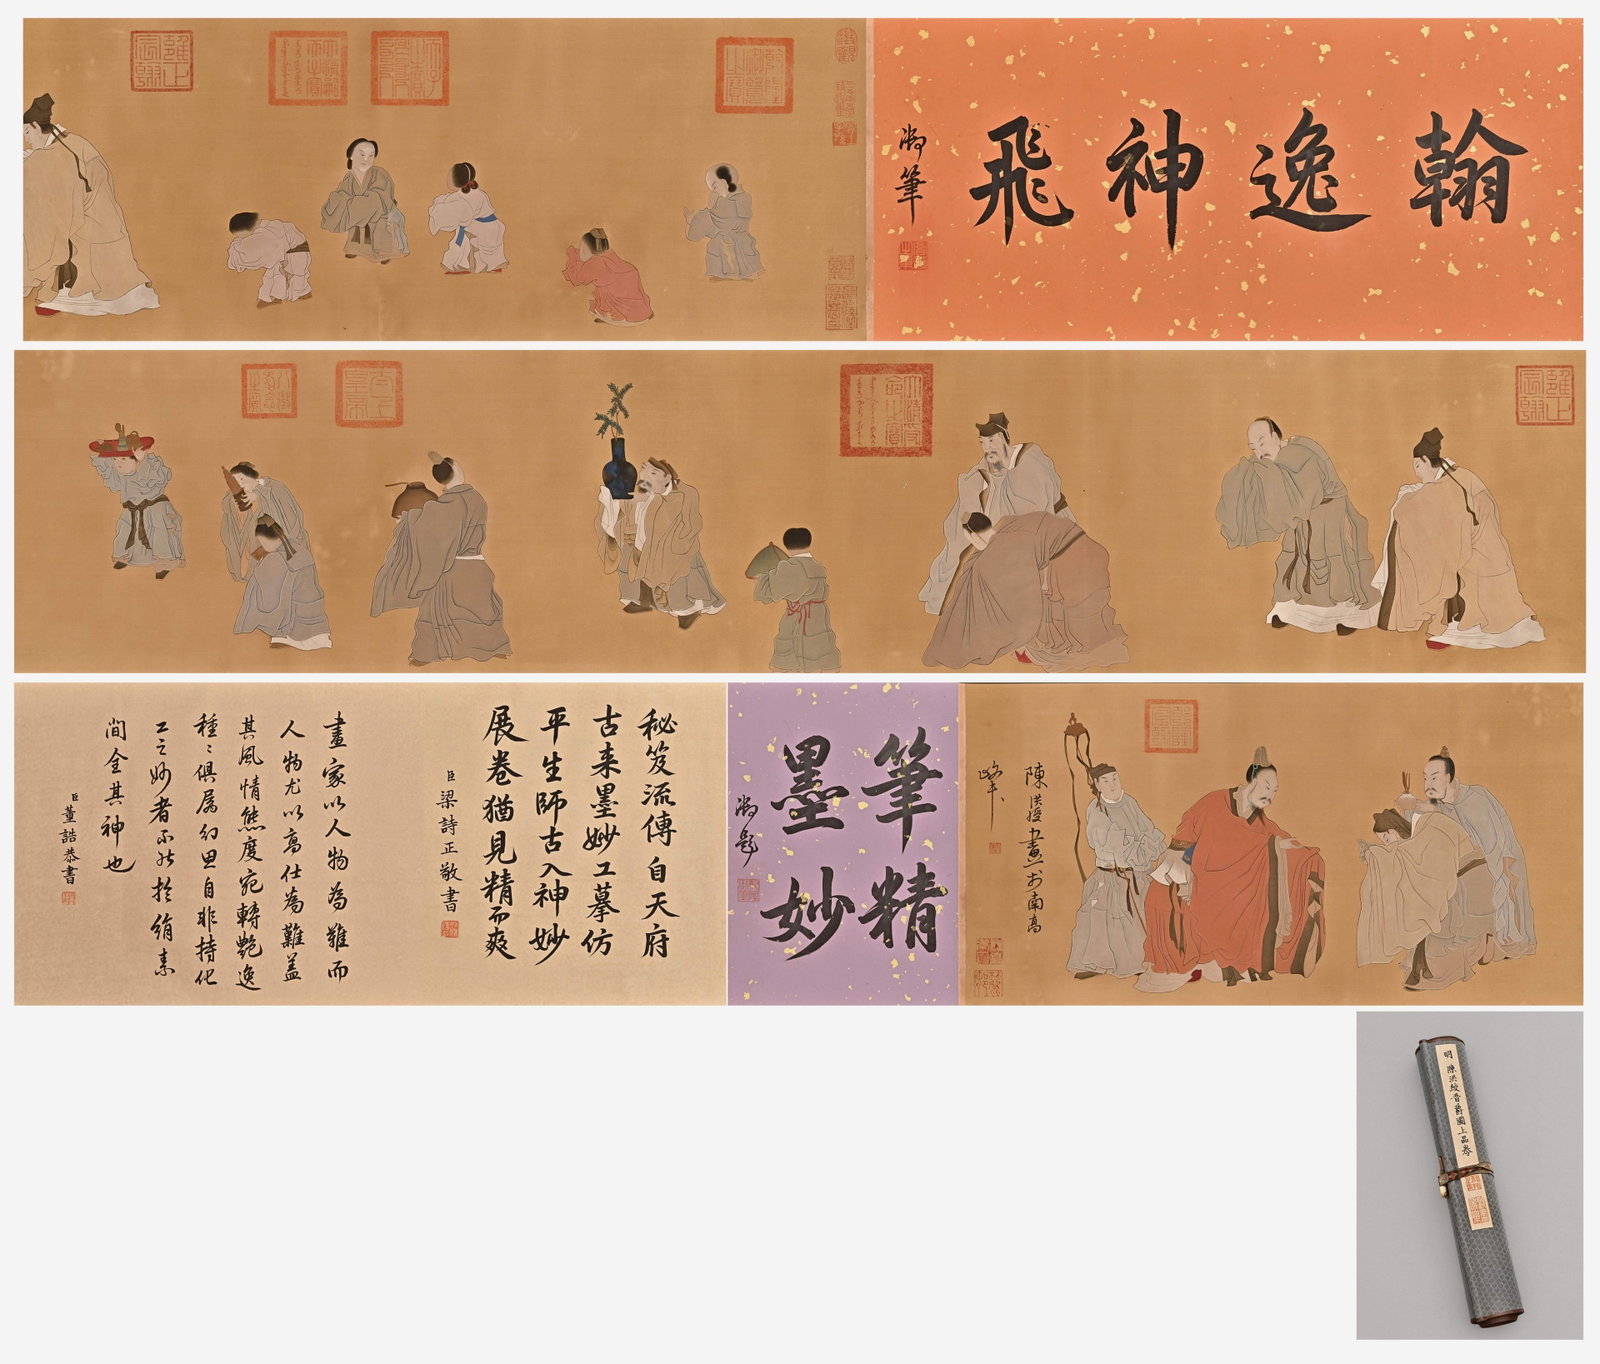 翰逸神飛
御筆
陳洪綬畫於南高
峰
筆精
墨妙
御題
秘笈流傳自天府
古來墨妙工摹仿
平生師古入神妙
展卷猶見精而爽
臣梁詩正敬書
畫家以人物為難而
人物尤以高仕為難蓋
其風情態度宛轉艷逸
種種俱屬幻思自非持化
工之妙者不能於絹素
間全其神也
臣董誥恭書
明 陳洪綬晉爵圖上品卷